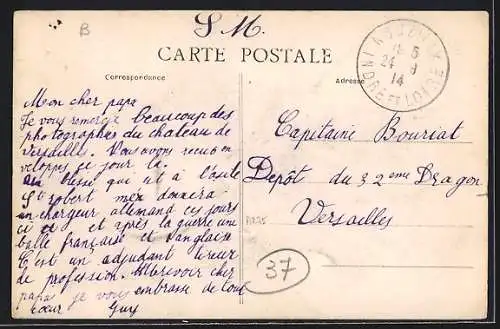 S M.
B
CARTE POSTALE
Correspondance
Adresse
INDRE ET LOIRE
24 - 9
14
Mon cher papa
Je vous remercie beaucoup des
photographies du chateau de
Versailles. Vous avons recu en
veloppes ce jour la.
blessé qui est à l'école
St robert m'en donnera
un chargeur allemand ces jours
ci et et après la guerre une
balle française et anglaise
C'est un adjudant tireur
de profession. Aurevoir cher
papa je vous embrasse de tout
cœur Guy
Capitaine Bouriat
Depôt du 32eme Dragon
Versailles
37